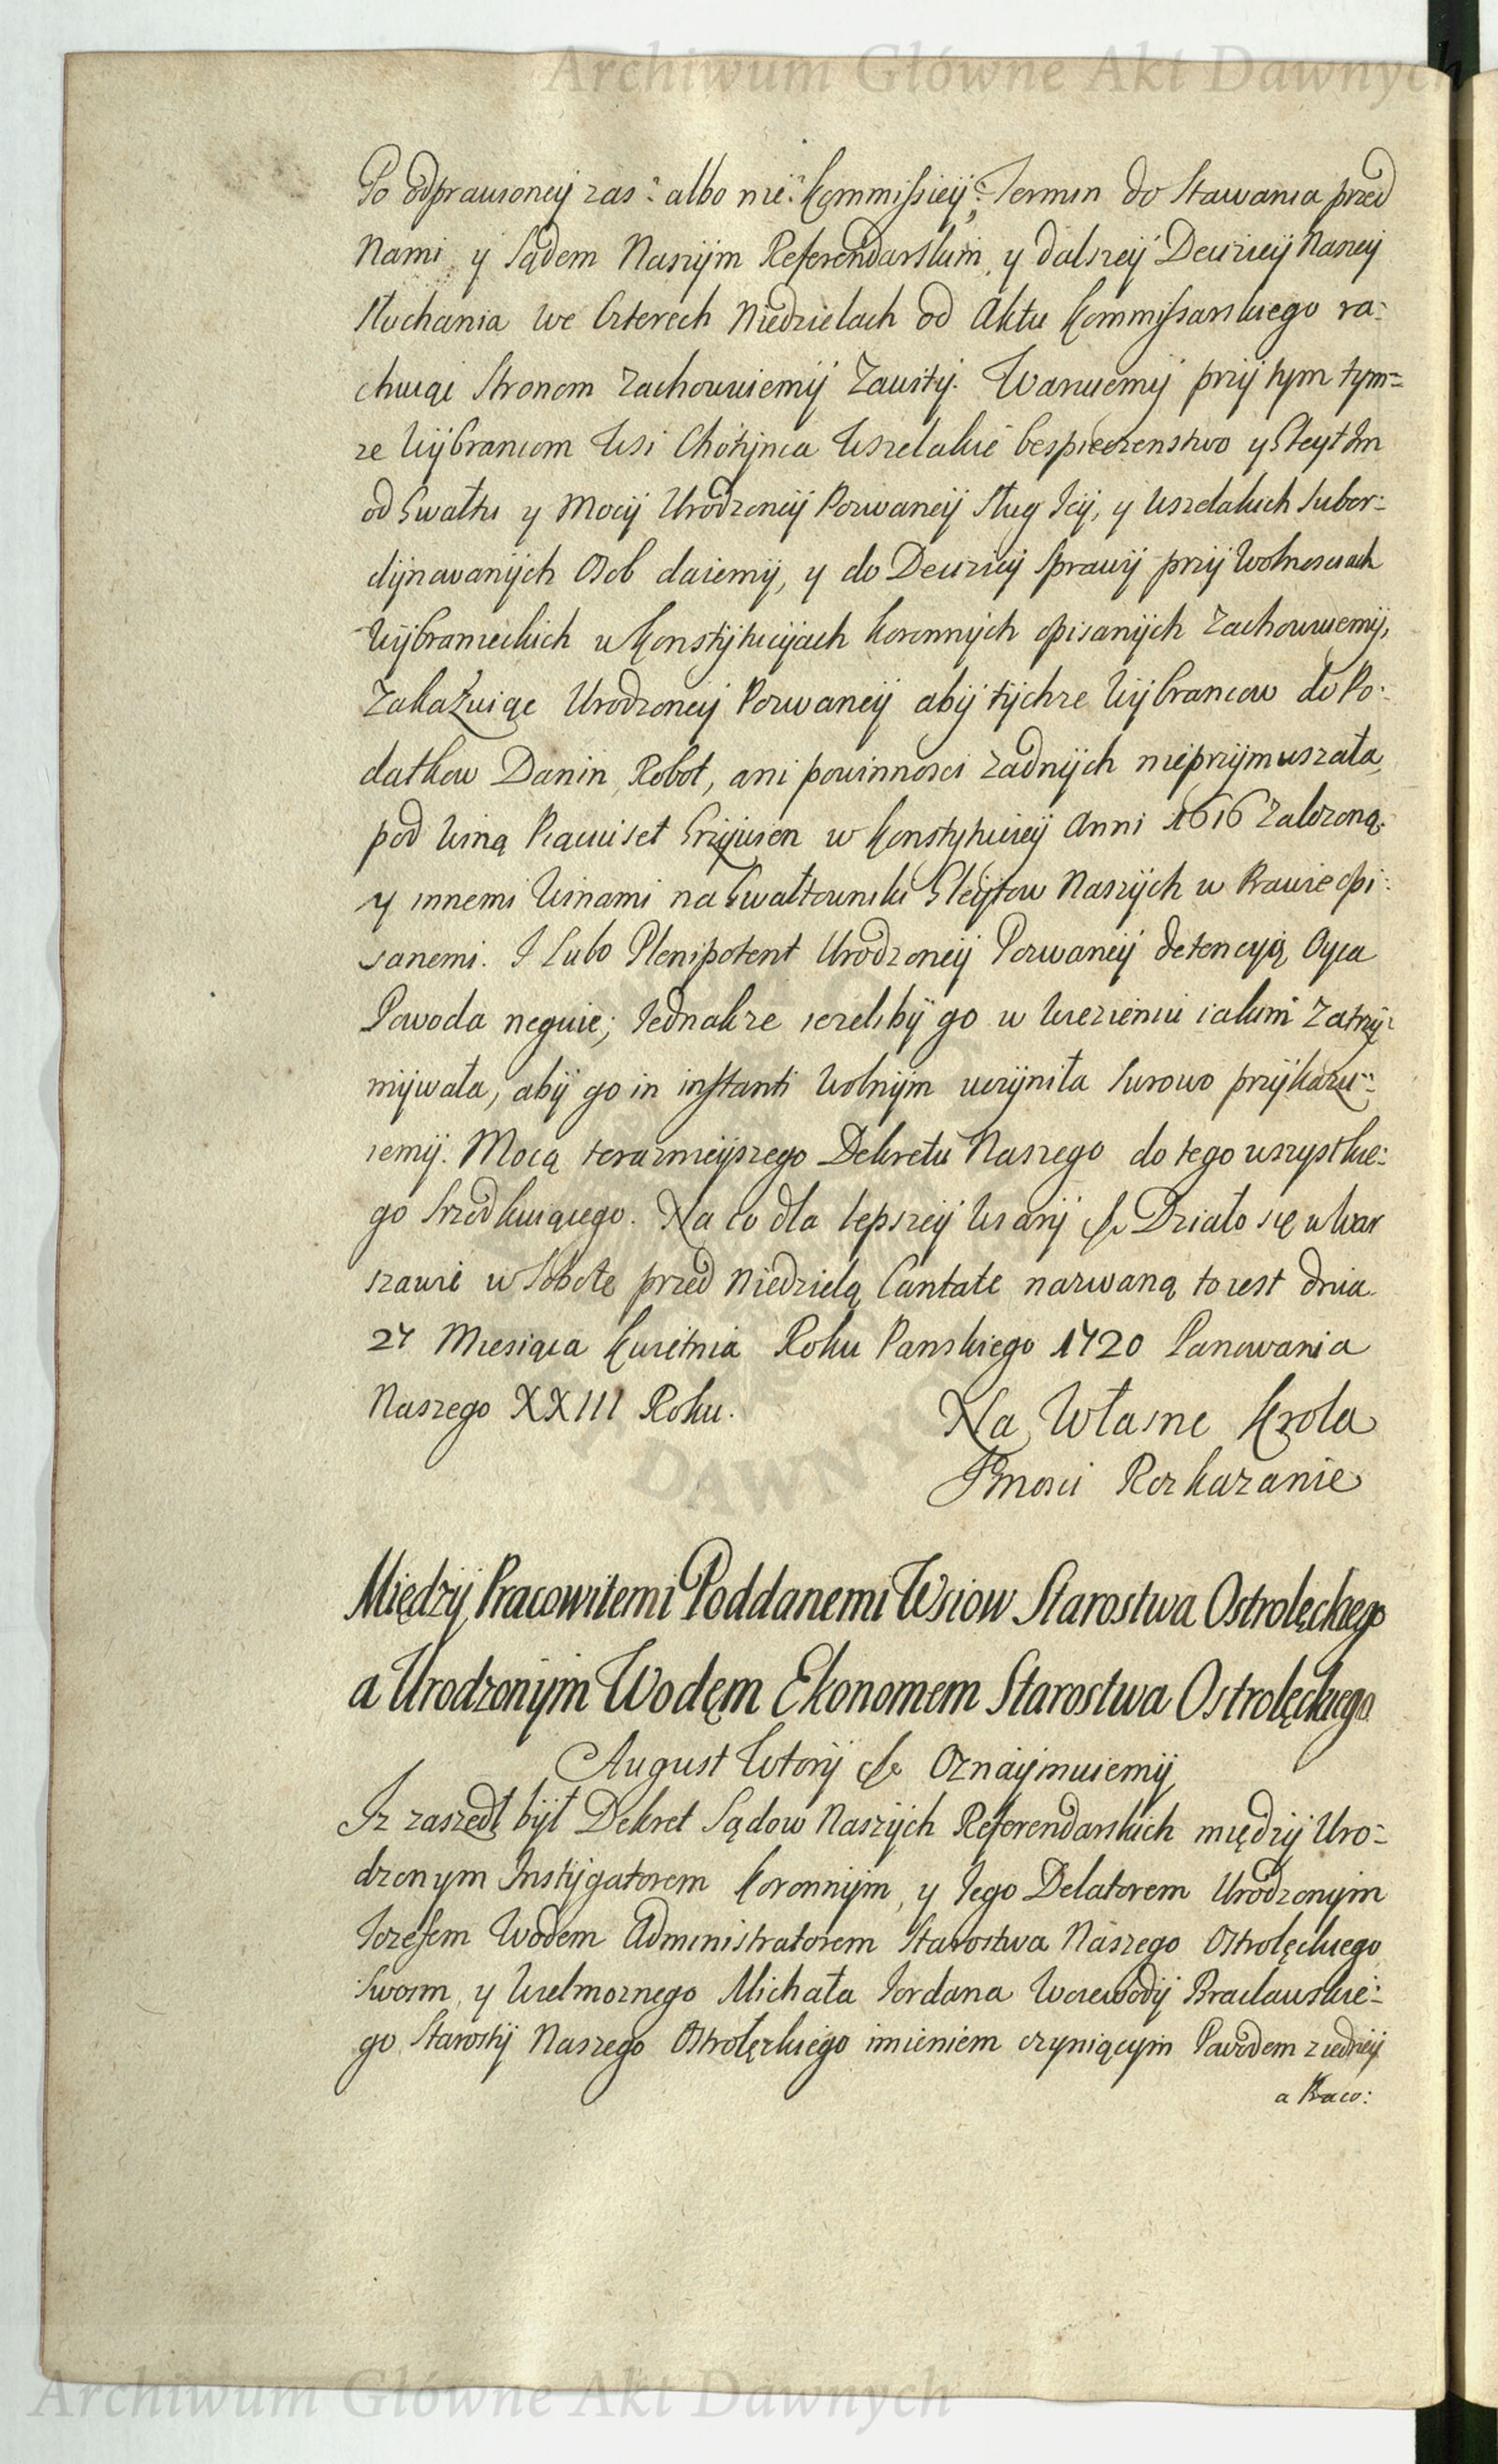 Archiwum Główne Akt Dawnych
Po odprawioneij zas: albo nie: Kommissieij: Termin do Stawania przed
Nami y Sądem Naszijm Referendarskim, y dalszeij Decizieij Naszeij
słuchania we Czterech Niedzielach od Aktu Kommissarskiego ra:
chuiąc Stronom Zachowuiemij Zawitij. Waruiemij przij tym tym=
ze Wijbrancom Wsi Chotijnca Wszelakie bespieczenstwo y Gleyt Im
od Gwałtu y Mocij Urodzoneij Pozwaneij Sług Jeij, y Wszelakich Subor:
dijnowanijch Osob daiemij, y do Decizieij Sprawij przij Wolnosciach
Wijbranieckich w Konstijtucijach Koronnijch opisanijch Zachowuiemij,
Zakazuiąc Urodzoneij Pozwaneij abij tijchze Wijbrancow do Po:
datkow Danin, Robot, ani powinnosci zadnijch nieprzijmuszała,
pod Winą Piąciuset Grzijwien w Konstytucieij Anni 1616 Załozoną.
y innemi Winami na Gwałtowniki Gleijtow Naszijch w Prawie opi:
sanemi. I Lubo Plenipotent Urodzoneij Pozwaneij detencyią Oyca
Powoda neguie; Jednakze iezelibij go w Wiezieniu iakim Zatrzij:
mijwała, abij go in instanti Wolnijm uczijniła Surowo przijkazu:
iemij. Mocą teraznieijszego Dekretu Naszego do tego wszystkie:
go Srzodkuiącego. Na co dla lepszeij Wiarij &c Działo się w War
szawie w Sobotę przed Niedzielą Cantate nazwaną to iest dnia
27 Miesiąca Kwietnia Roku Panskiego 1720 Panowania
Naszego XXIII Roku.
Na Własne Krola
Jmosci Rozkazanie
Międzij Pracowitemi Poddanemi Wsiow Starostwa Ostrołęckiego
a Urodzonijm Wodęm Ekonomem Starostwa Ostrołęckiego
August Wtorij &c Oznaijmuiemij
Iz zaszedł bijł Dekret Sądow Naszijch Referendarskich międzij Uro=
dzonym Instijgatorem Koronnijm, y Jego Delatorem Urodzonijm
Jozefem Wodem Administratorem Starostwa Naszego Ostrołęckiego
Swoim, y Wielmoznego Michała Jordana Woiewodij Bracławskie:
go Starostij Naszego Ostrołęckiego imieniem czyniącym Powodem z iedneij
a Praco:
Archiwum Główne Akt Dawnych